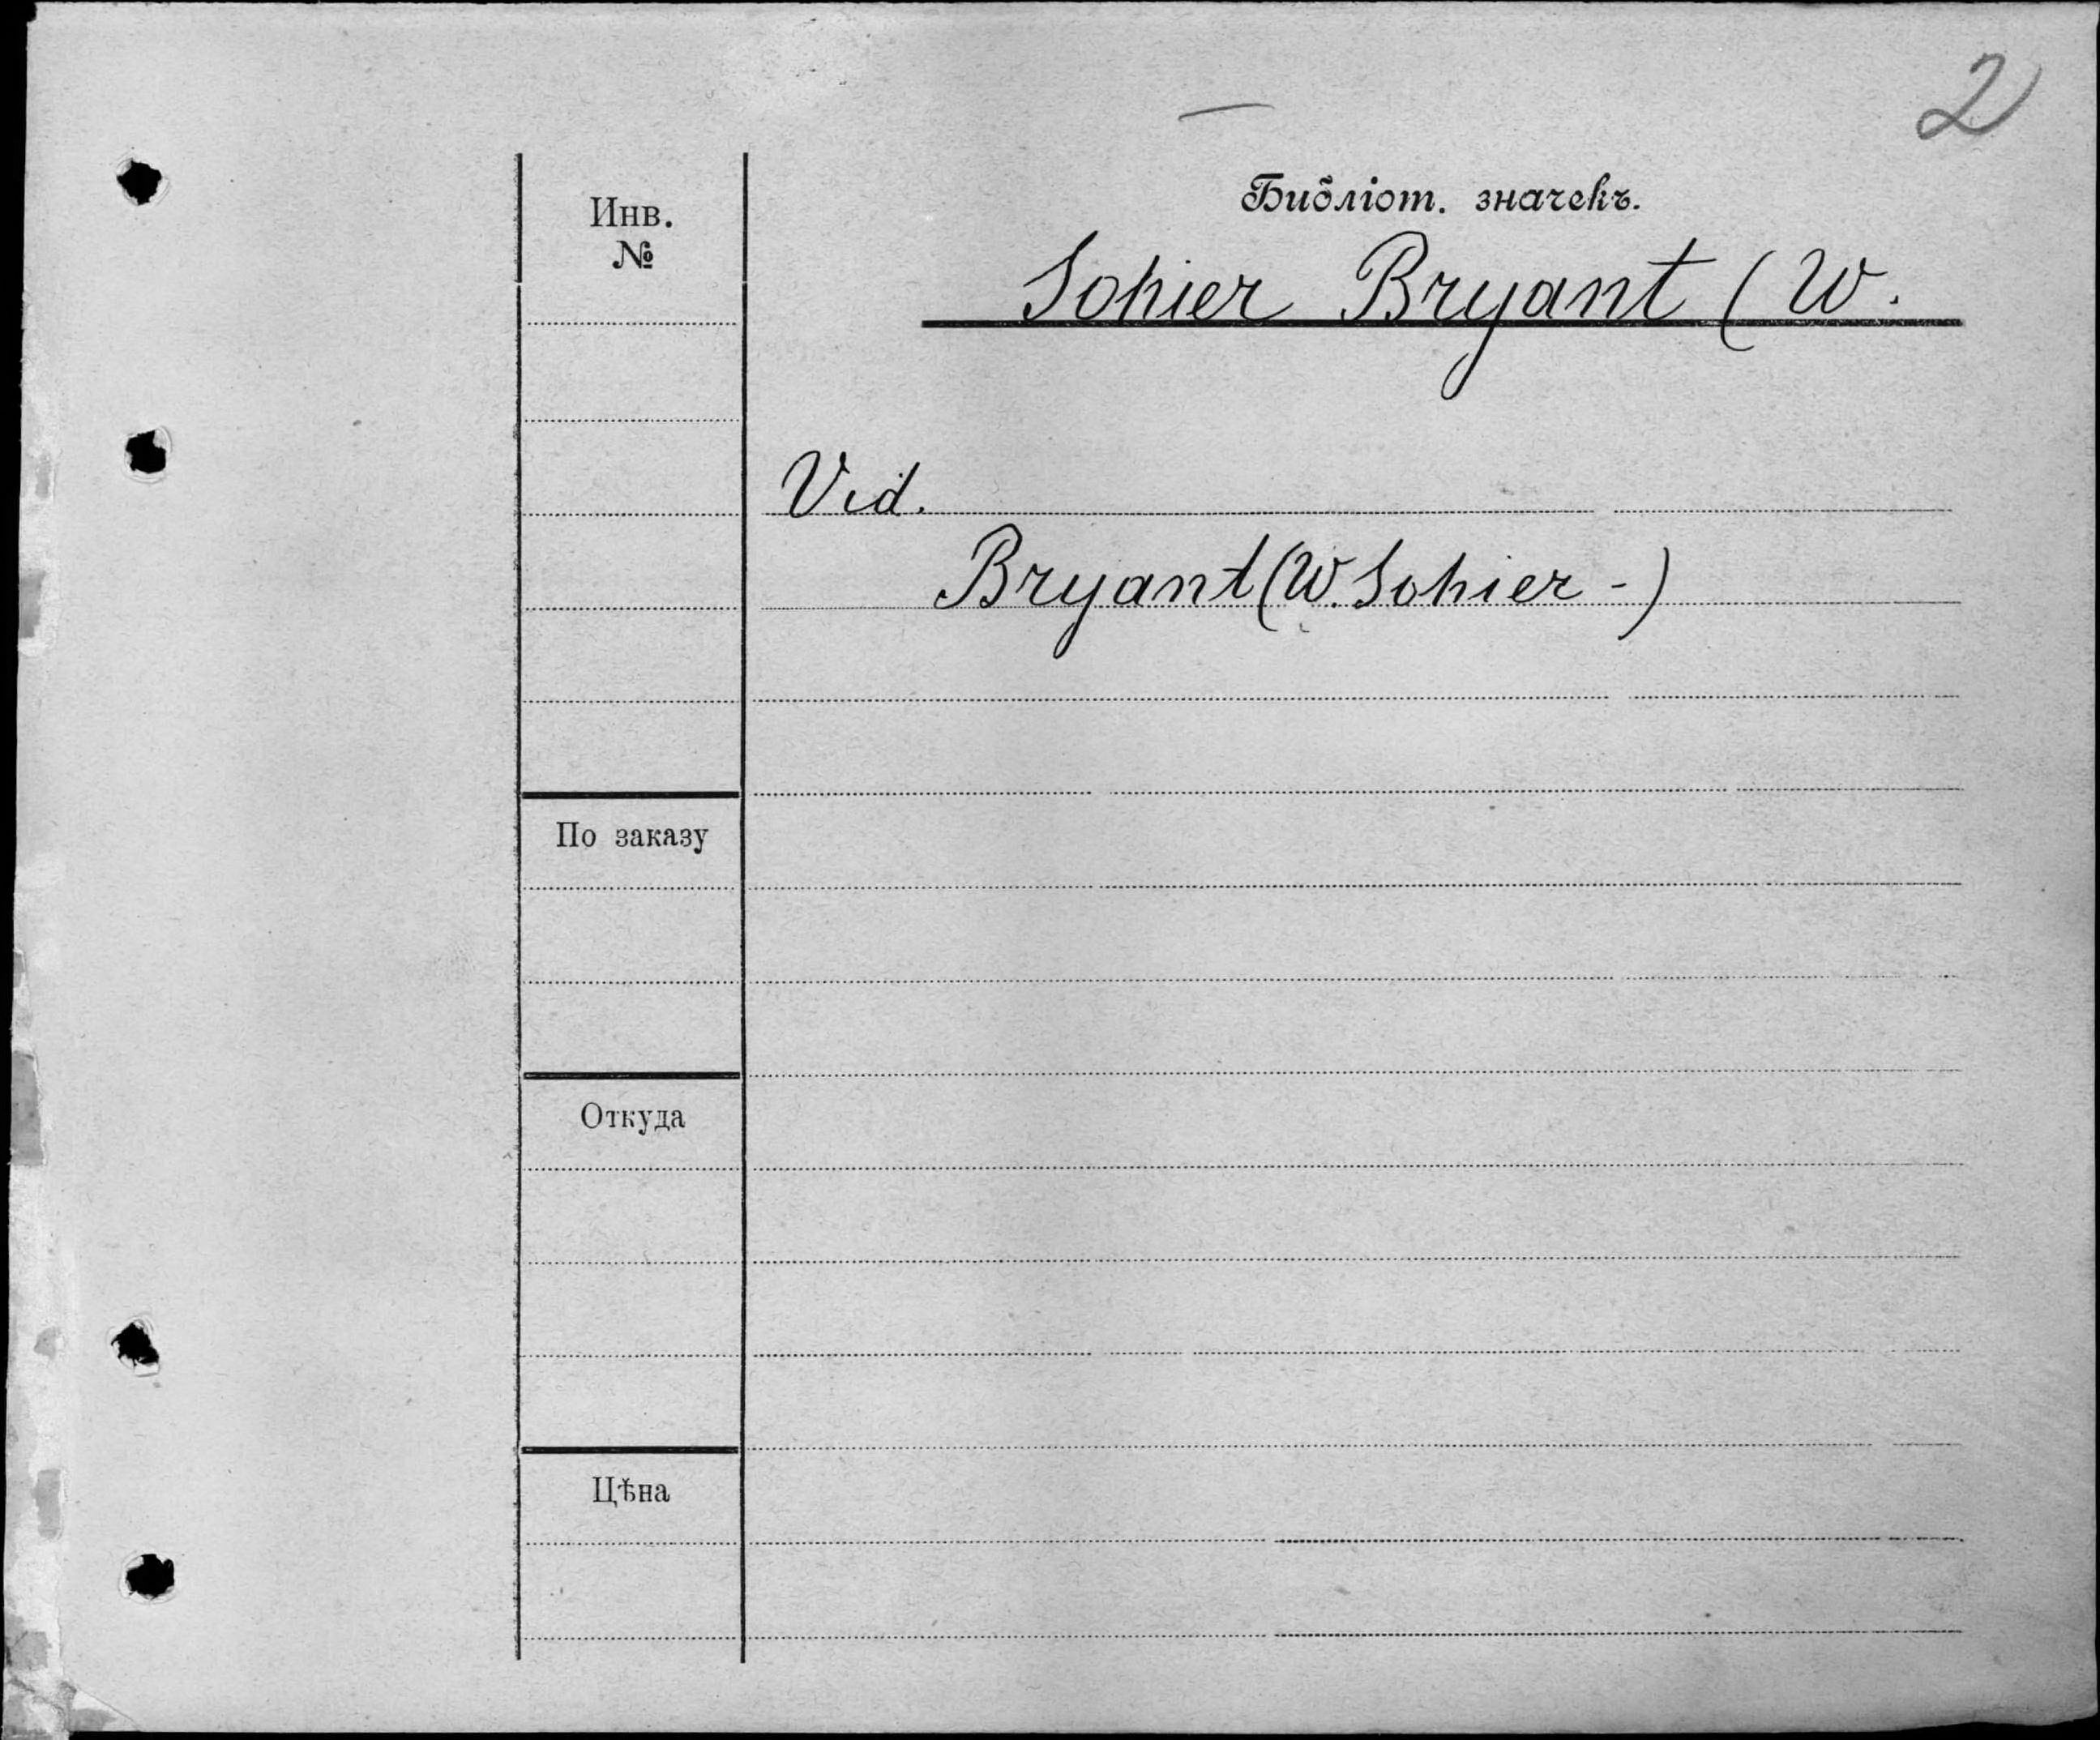 2
Библіот. значекъ.
Инв.
№
Sohier Bryant (W.
Vid.
Bryant (W. Sohier -)
По заказу
Откуда
Цѣна